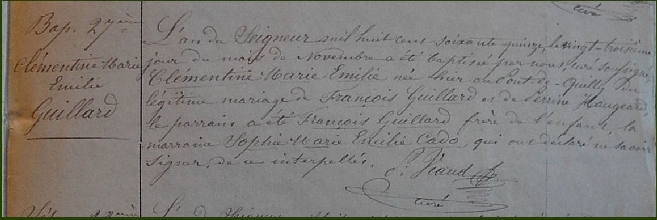 curé
Bap. 27ème
Clémentine Marie
Emilie
Guillard
L'an du Seigneur mil huit cent soixante quinze, le vingt-troisième
jour du mois de Novembre a été baptisée par nous curé soussigné,
Clémentine Marie Emilie née hier au Pont-de-Quilly du
légitime mariage de François Guillard et de Perrine Haugeard
le parrain a été François Guillard frère de l'enfant, la
marraine Sophie Marie Emilie Cado, qui ont déclaré ne savoir
signer, de ce interpellés.
curé
L'an du Seigneur